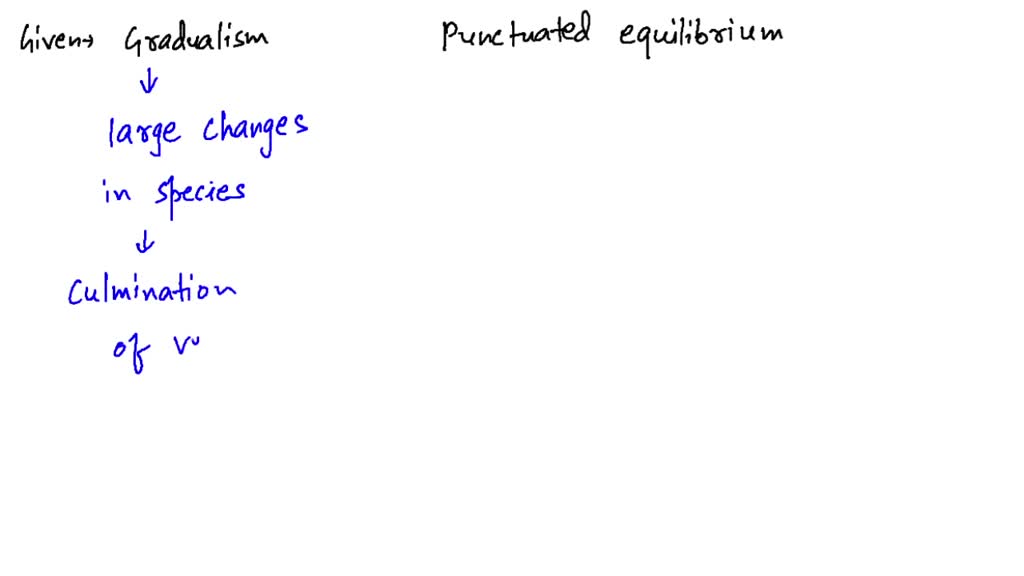 Given→ Gradualism Punctuated equilibrium
↓
large changes
in species
↓
Culmination
of